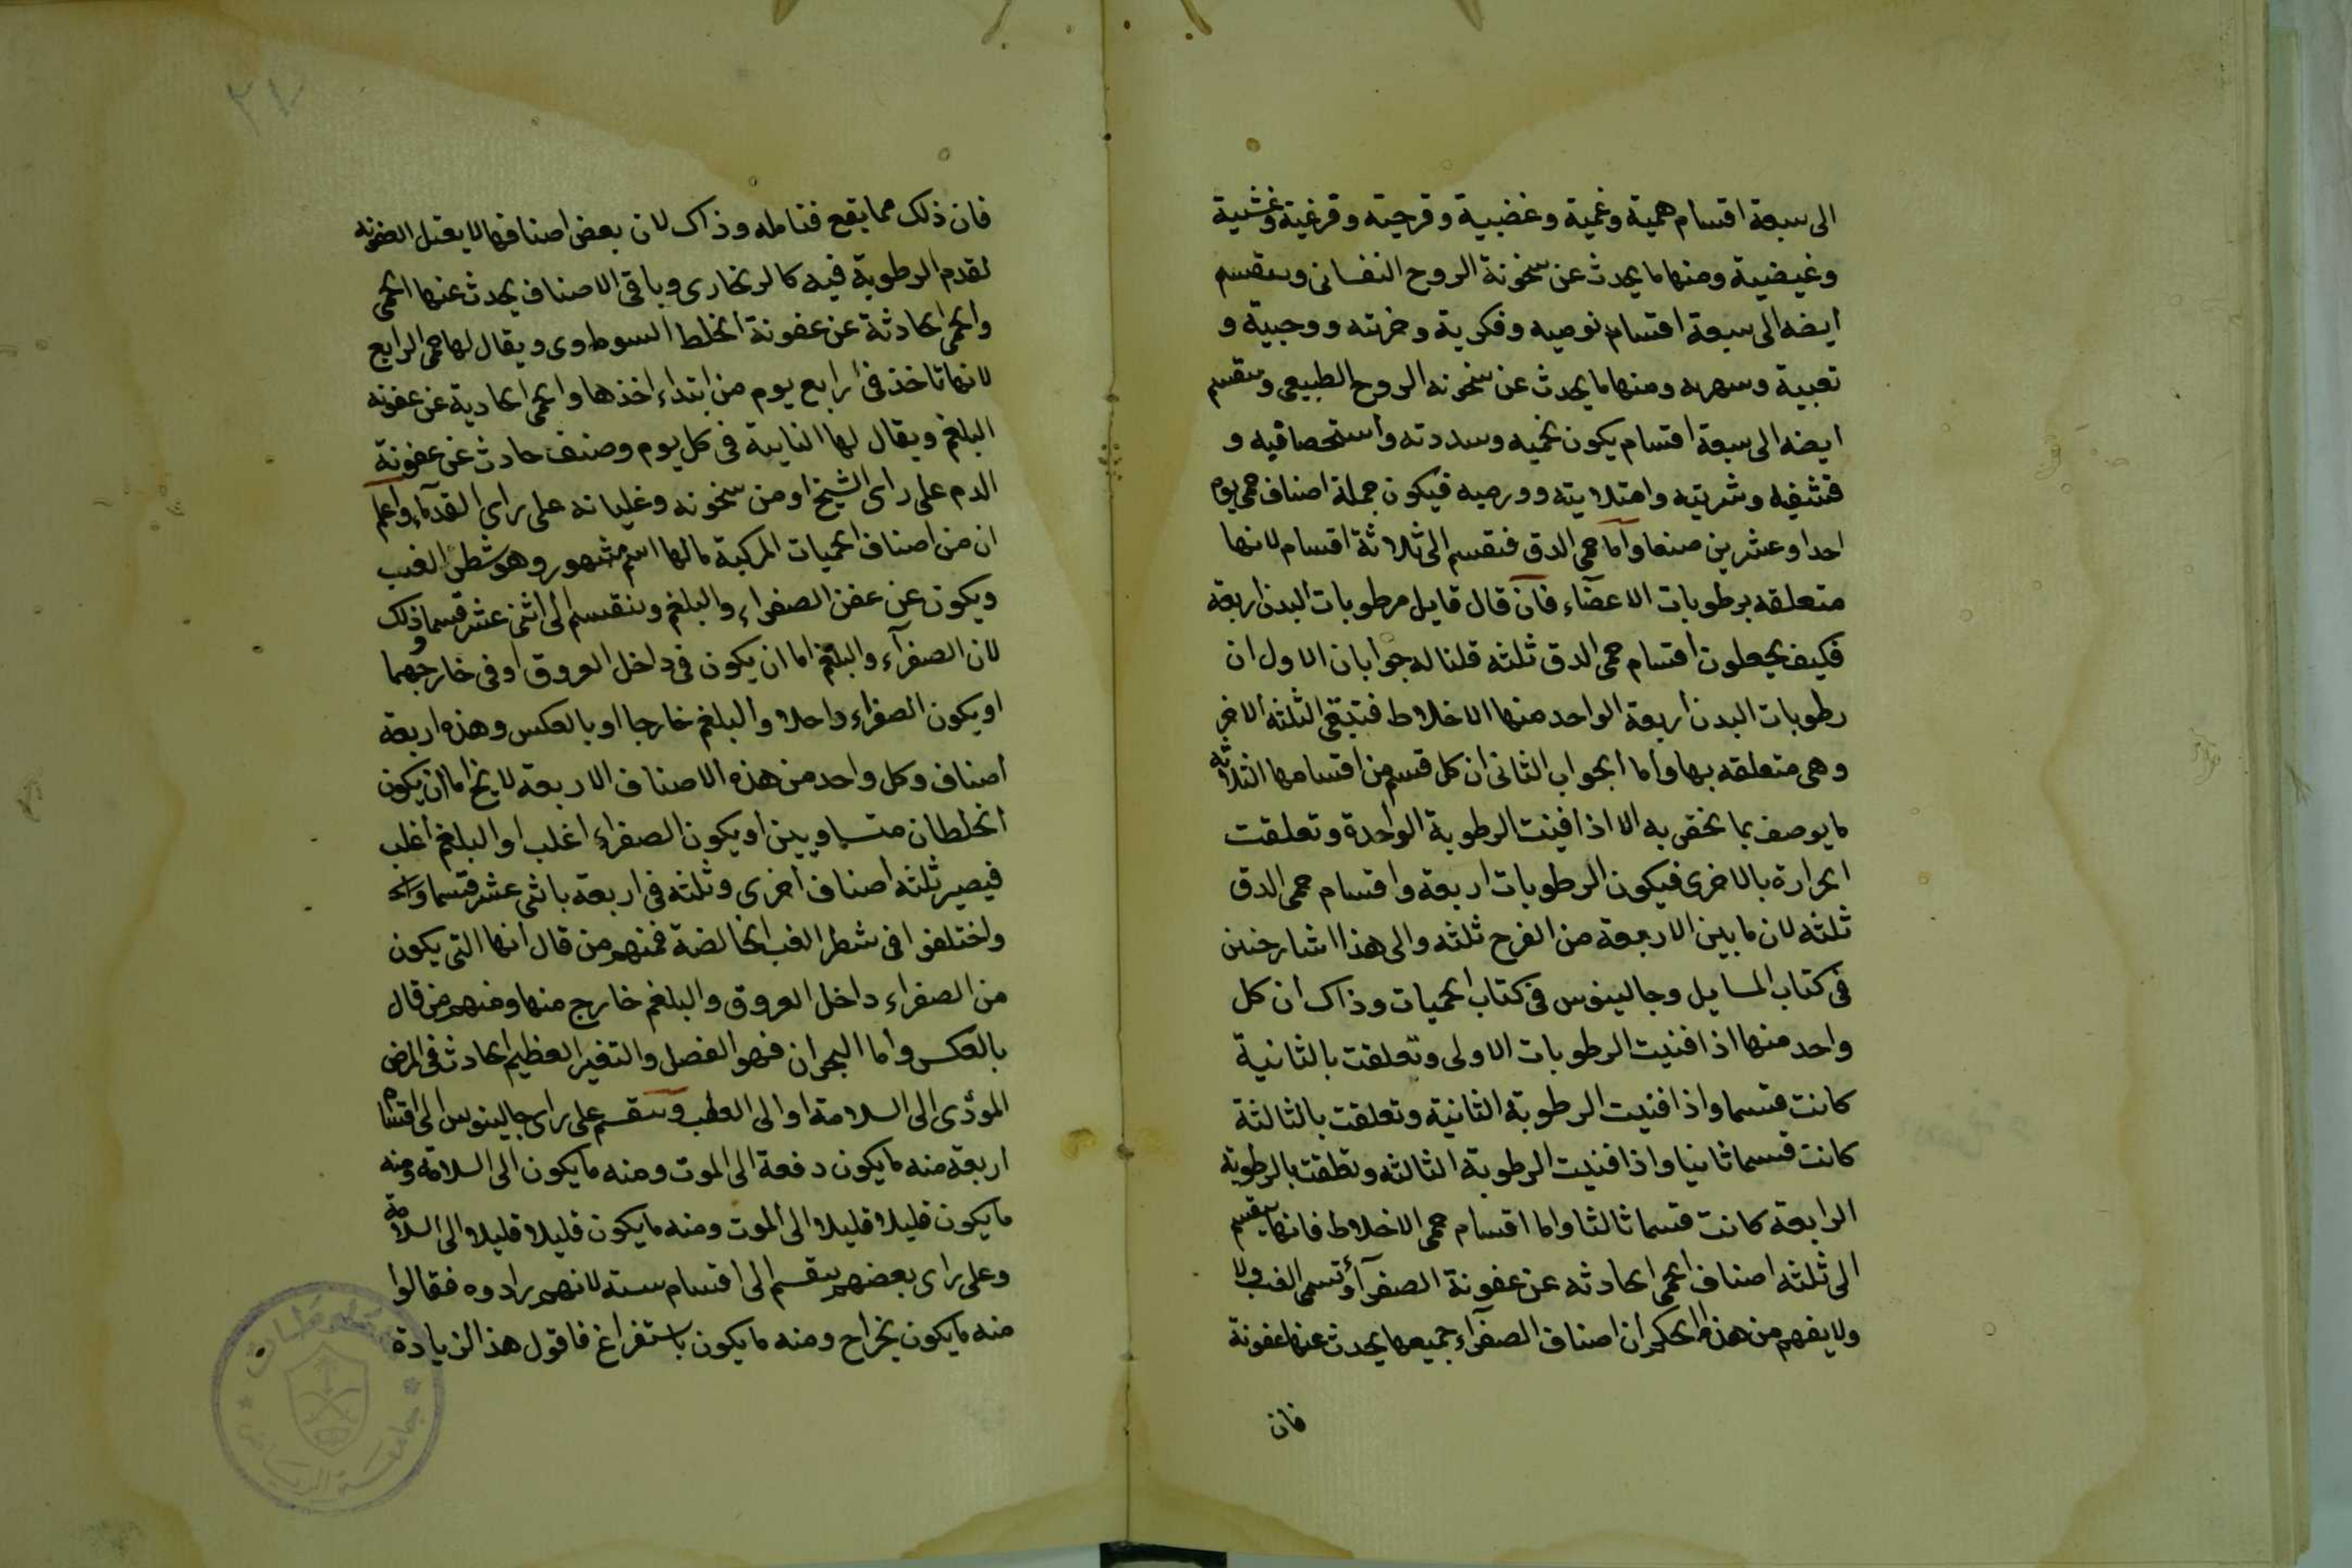 الى سبعة اقسام همية وغمية وغضبية وفرحية وفزعية وغشية
وغيضية ومنها ما يحدث عن سخونة الروح النفسانى وينقسم
ايضه الى سبعة اقسام نوميه وفكرية وحزنيه ووجبية و
تعبية وسهريه ومنها ما يحدث عن سخونه الروح الطبيعى وينقسم
ايضه الى سبعة اقسام يكون تخميه وسدديه واستحصافيه و
قشفيه وشربيه وامتلايته وورميه فيكون جملة اصناف حمى يوم
احدا وعشرين صنفا واما حمى الدق فتقسم الى ثلاثة اقسام لانها
متعلقه برطوبات الاعضاء فان قال قايل رطوبات البدن اربعه
فكيف يجعلون اقسام حمى الدق ثلثه قلنا له جوابان الاول ان
رطوبات البدن اربعة الواحد منها الاخلاط فتبقى الثلثه الاخر
وهى متعلقه بها واما الجواب الثانى ان كل قسم من اقسامها الثلاثه
ما يوصف بما يختص به الا اذا فينت الرطوبة الواحدة وتعلقت
الحرارة بالاخرى فيكون الرطوبات اربعة واقسام حمى الدق
ثلثه لان ما بين الاربعة من الفرج ثلثه والى هذا اشار حنين
فى كتاب المسايل وجالينوس فى كتاب الحميات وذاك ان كل
واحد منها اذا فنيت الرطوبات الاولى وتعلقت بالثانية
كانت قسما واذا فنيت الرطوبة الثانية وتعلقت بالثالثة
كانت قسما ثانيا واذا فنيت الرطوبة الثالثه وتعلقت بالرطوبة
الرابعة كانت قسما ثالثا واما اقسام حمى الاخلاط فانها ينقسم
الى ثلثه اصناف الحمى الحادثه عن عفونة الصفرآ وتسمى الغب ولا
ولا يفهم من هذا الحكم ان اصناف الصفرآء جميعها يحدث عنها عفونة
فان
٢٧
فان ذلك مما يقع فتامله وذاك لان بعض اصنافها لا يقبل العفونه
لقدم الرطوبة فيه كالزنجارى وباقى الاصناف يحدث عنها الحمى
والحمى الحادثة عن عفونة الخلط السوداوى ويقال لها حمى الرابع
لانها تاخذ فى رابع يوم من ابتداء اخذها والحمى الحادية عن عفونه
البلغم ويقال لها النايبة فى كل يوم وصنف حادث عن عفونة
الدم على راى الشيخ او من سخونه وغليانه على راى القدمآء واعلم
ان من اصناف الحميات المركبة ما لها اسم مشهور وهو شطر الغب
ويكون عن عفن الصفراء والبلغم وينقسم الى اثنى عشر قسما وذلك
لان الصفرآء والبلغم اما ان يكون فى داخل العروق او فى خارجهما
او يكون الصفراء داخلا والبلغم خارجا او بالعكس وهذه اربعة
اصناف وكل واحد من هذه الاصناف الاربعة لا يخ اما ان يكون
الخلطان متساويين او يكون الصفراء اغلب او البلغم اغلب
فيصير ثلثه اصناف اخرى وثلثه فى اربعة باثنى عشر قسما
واختلفوا فى شطر الغب الخالصة فمنهم من قال انها التى يكون
من الصفراء داخل العروق والبلغم خارج منها ومنهم من قال
بالعكس واما البحران فهو الفصل والتغير العظيم الحادث فى المرض
المؤدى الى السلامة او الى العطب وينقسم على راى جالينوس الى اقسام
اربعة منه ما يكون دفعة الى الموت ومنه ما يكون الى السلامة ومنه
ما يكون قليلا قليلا الى الموت ومنه ما يكون قليلا قليلا الى السلامة
وعلى راى بعضهم ينقسم الى اقسام سته لانهم زادوه فقالوا
منه ما يكون بخراج ومنه ما يكون باستفراغ فاقول هذا الزيادة
جامعة الرياض